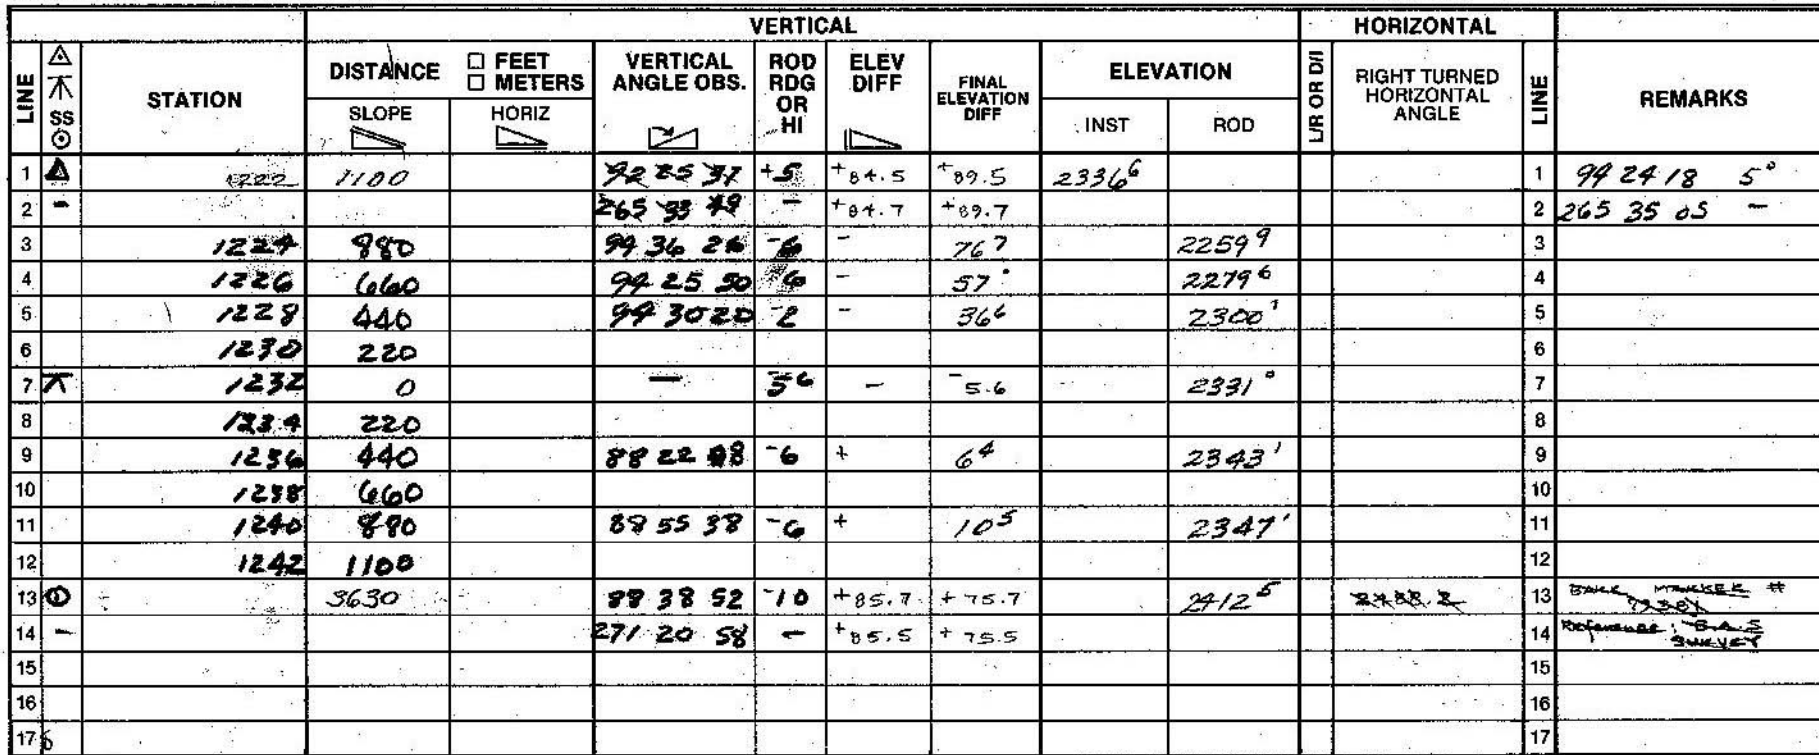 VERTICAL HORIZONTAL
LINE SS STATION DISTANCE □ FEET □ METERS SLOPE HORIZ VERTICAL ANGLE OBS. ROD RDG OR HI ELEV DIFF FINAL ELEVATION DIFF ELEVATION INST ROD L/R OR D/I RIGHT TURNED HORIZONTAL ANGLE LINE REMARKS
1 1222 1100 92 25 37 +5 +84.5 +89.5 2336⁶ 1 94 24 18 5°
2 - 265 33 49 - +84.7 +89.7 2 265 35 05 -
3 1224 880 94 36 26 -6 - 76⁷ 2259⁹ 3
4 1226 660 94 25 50 6 - 57° 2279⁶ 4
5 1228 440 94 30 20 -2 - 36⁶ 2300¹ 5
6 1230 220 6
7 1232 0 — 5⁶ - -5.6 2331° 7
8 1234 220 8
9 1236 440 88 22 08 -6 + 6⁴ 2343¹ 9
10 1238 660 10
11 1240 880 88 55 38 -6 + 10⁵ 2347¹ 11
12 1242 1100 12
13 3630 88 38 52 -10 +85.7 +75.7 2412⁵ 13
14 - 271 20 58 - +85.5 +75.5 14 Reference: SURVEY
15 15
16 16
17 17